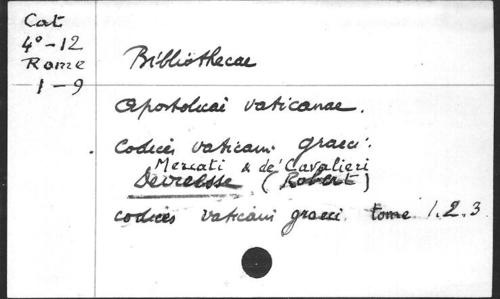 Cat
4°-12
Rome
1-9
Bibliothecae
apostolicae vaticanae.
Codices vaticani graeci.
Mercati & de' Cavalieri
Devreesse (Robert)
codices vaticani graeci. tome 1.2.3